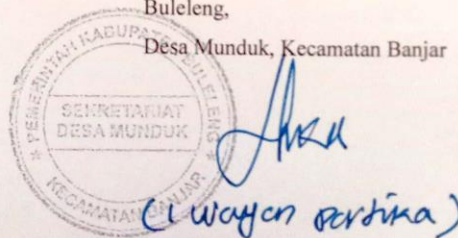 Buleleng,
Desa Munduk, Kecamatan Banjar
PEMERINTAH KABUPATEN BULELENG
SEKRETARIAT
DESA MUNDUK
KECAMATAN BANJAR
(I Wayan Partika)